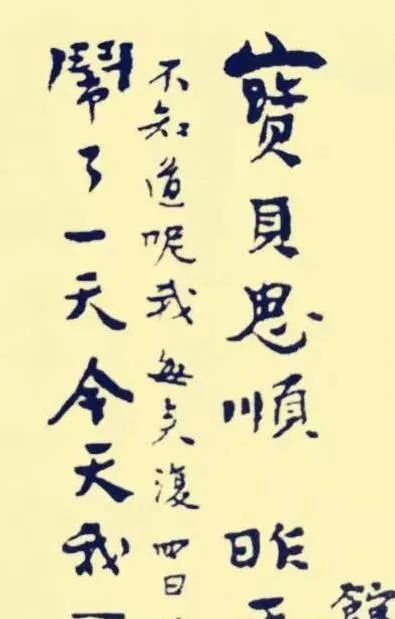 館
寶貝思順 昨
不知道呢我每復四日
鬧了一天今天我